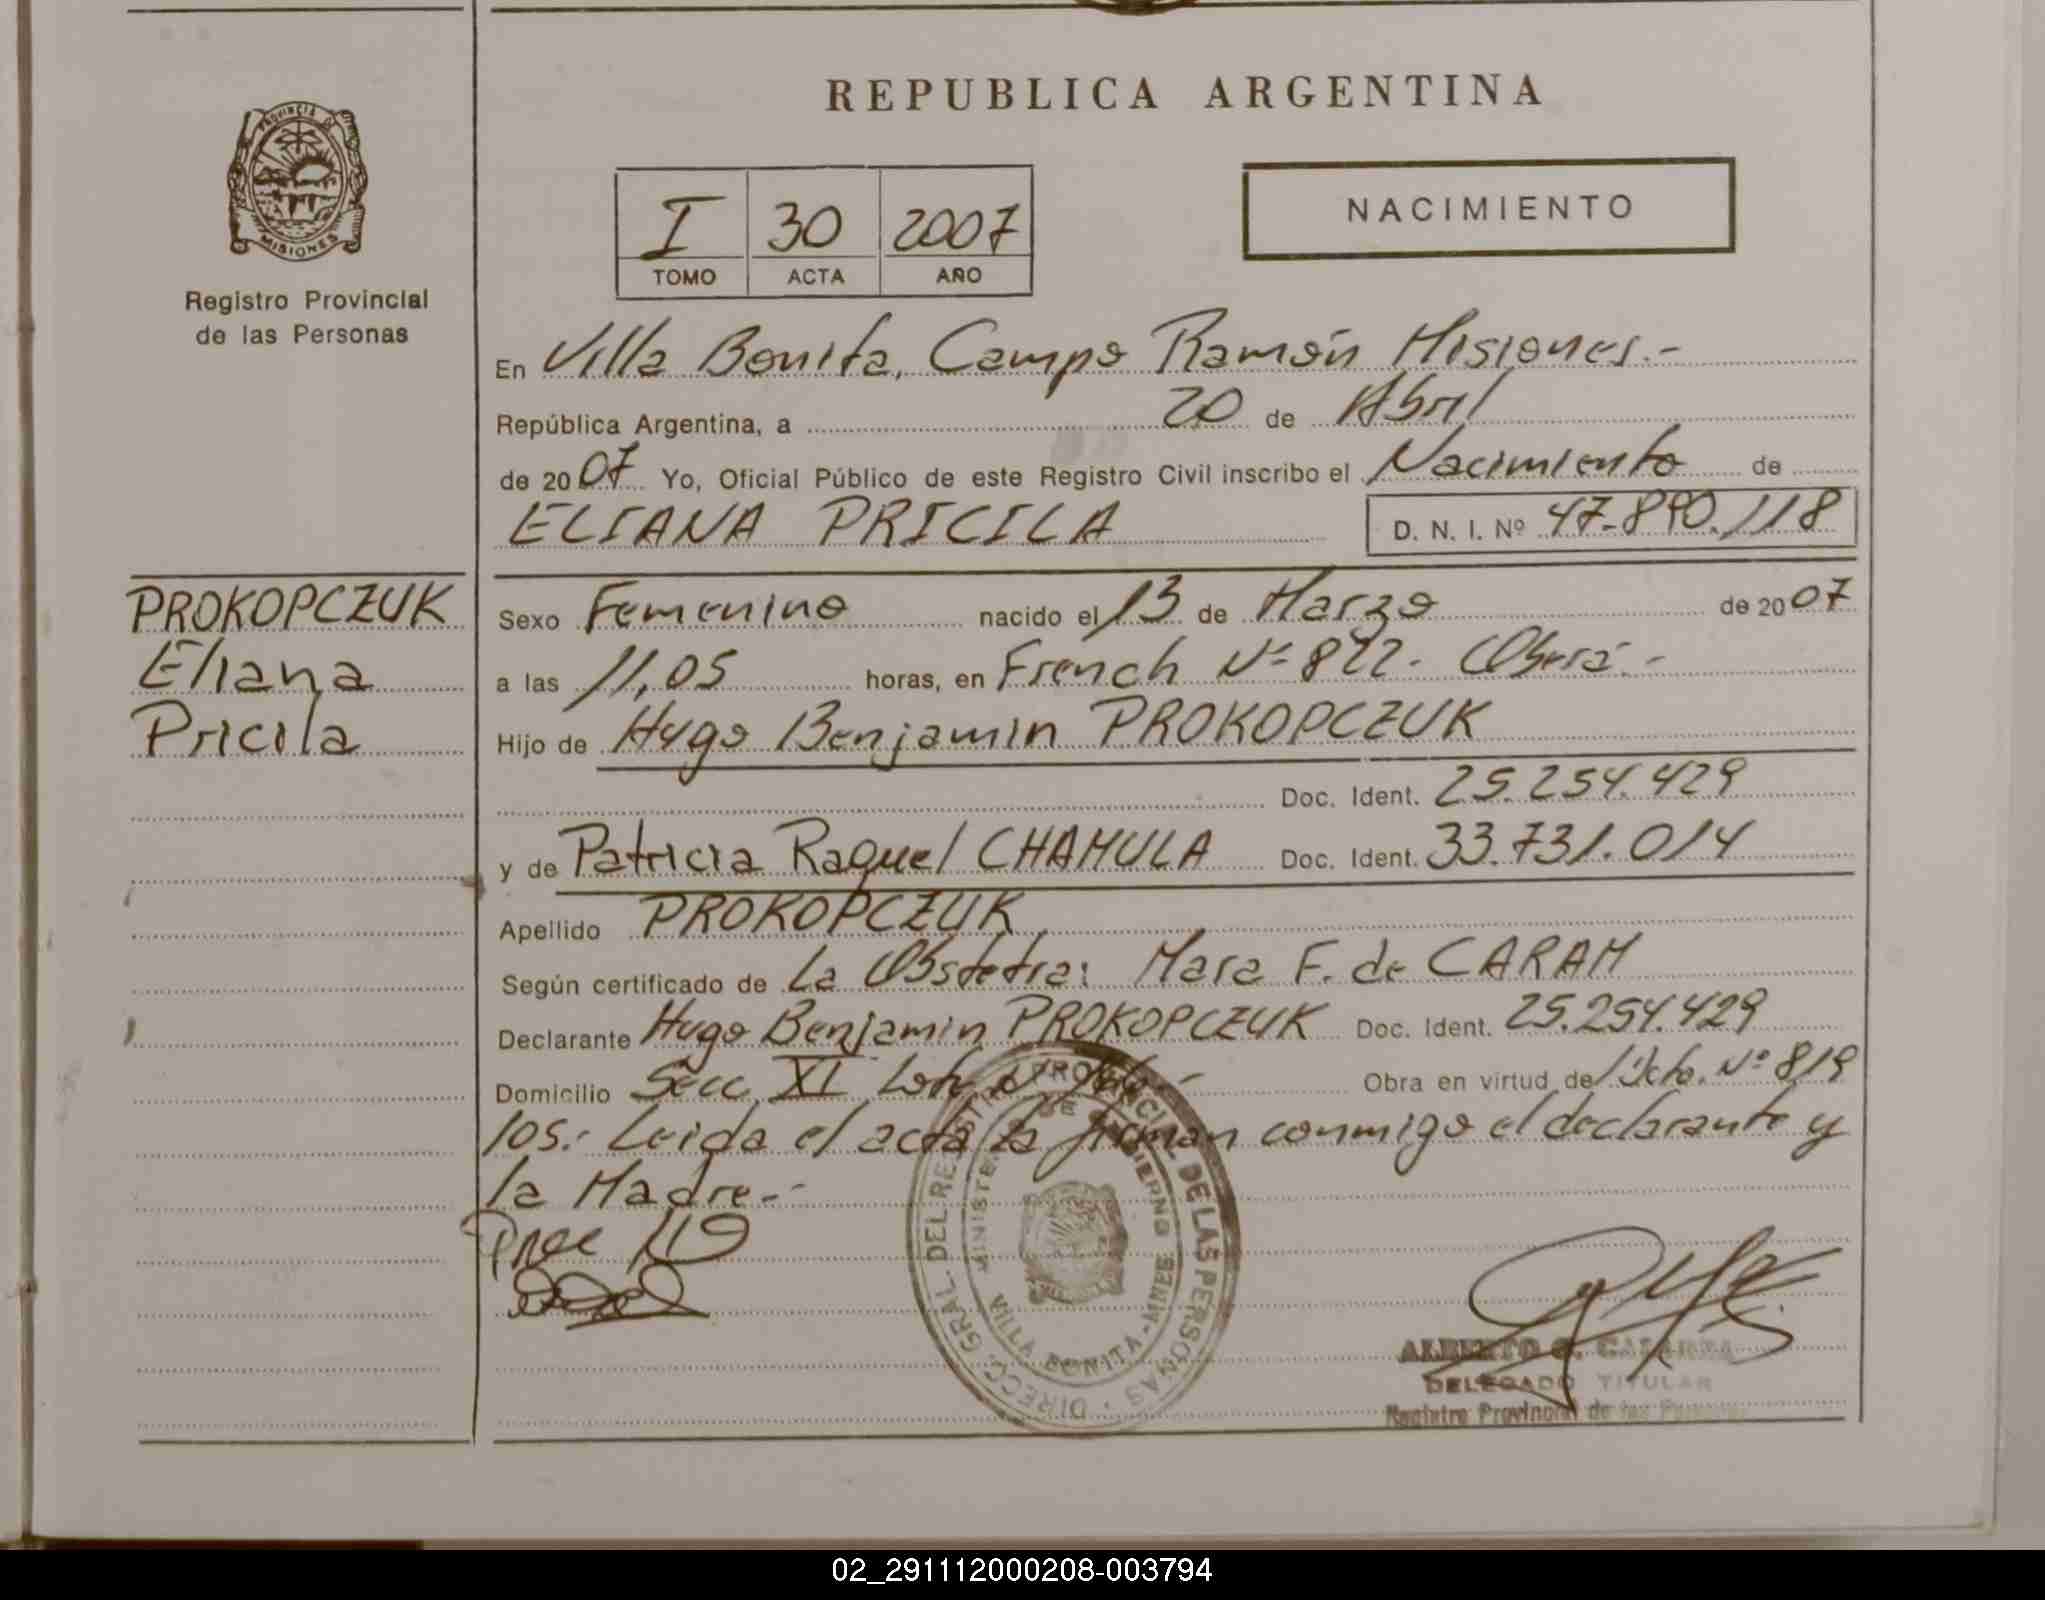 REPUBLICA ARGENTINA
PROVINCIA DE
MISIONES
Registro Provincial
de las Personas
I 30 2007
TOMO ACTA AÑO
NACIMIENTO
En Villa Bonita, Campo Ramón Misiones.-
República Argentina, a 20 de Abril
de 2007 Yo, Oficial Público de este Registro Civil inscribo el Nacimiento de
ELIANA PRICILA D. N. I. Nº 47.890.118
PROKOPCZUK
Eliana
Pricila
Sexo Femenino nacido el 13 de Marzo de 2007
a las 11,05 horas, en French Nº 822. Oberá.-
Hijo de Hugo Benjamin PROKOPCZUK
Doc. Ident. 25.254.429
y de Patricia Raquel CHAMULA Doc. Ident. 33.731.014
Apellido PROKOPCZUK
Según certificado de La Obstetra: Mara F. de CARAM
Declarante Hugo Benjamin PROKOPCZUK Doc. Ident. 25.254.429
Domicilio Secc. XI Lote Obra en virtud de Dcto. Nº 819
105.- Leida el acta la firman conmigo el declarante y
la Madre.-
DIRECC. GRAL. DEL REGISTRO PROVINCIAL DE LAS PERSONAS
MINISTERIO DE GOBIERNO
VILLA BONITA - MNES
ALBERTO
DELEGADO TITULAR
Registro Provincial de las Personas
02_291112000208-003794